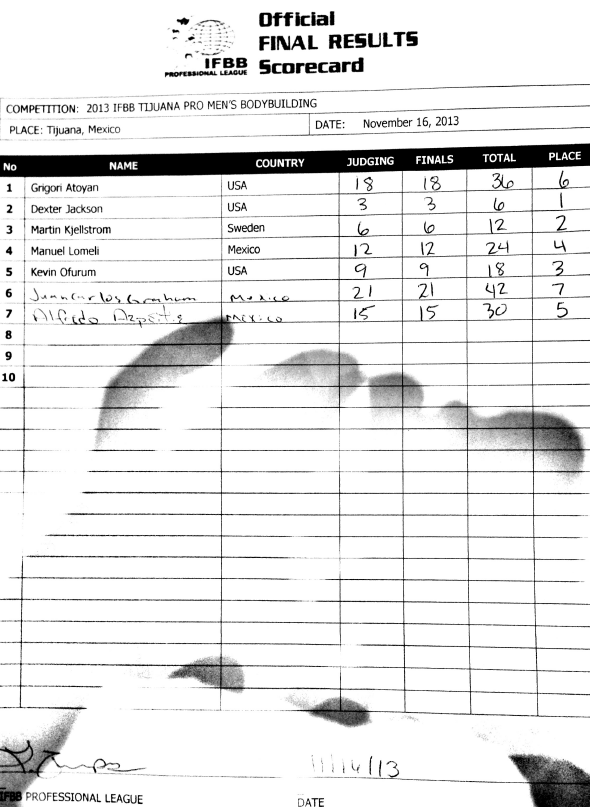 Official
FINAL RESULTS
IFBB Scorecard
PROFESSIONAL LEAGUE
COMPETITION: 2013 IFBB TIJUANA PRO MEN'S BODYBUILDING
PLACE: Tijuana, Mexico DATE: November 16, 2013
No NAME COUNTRY JUDGING FINALS TOTAL PLACE
1 Grigori Atoyan USA 18 18 36 6
2 Dexter Jackson USA 3 3 6 1
3 Martin Kjellstrom Sweden 6 6 12 2
4 Manuel Lomeli Mexico 12 12 24 4
5 Kevin Ofurum USA 9 9 18 3
6 Mexico 21 21 42 7
7 Alfredo Mexico 15 15 30 5
8
9
10
11/16/13
IFBB PROFESSIONAL LEAGUE DATE